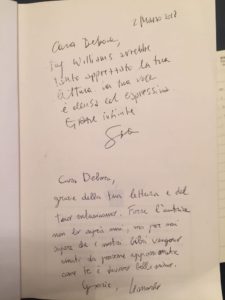 2 Marzo 2018
Cara Debora,
Tay Williams avrebbe
tanto apprezzato la tua
lettura. La tua voce
è densa ed espressiva
Grazie infinite
Cara Debora,
grazie della tua lettura e del
tuo entusiasmo. Forse l'autrice
non lo saprà mai, ma per noi
sapere che i nostri libri vengono
amati da persone appassionate
come te è davvero bellissimo.
Grazie, Leonardo